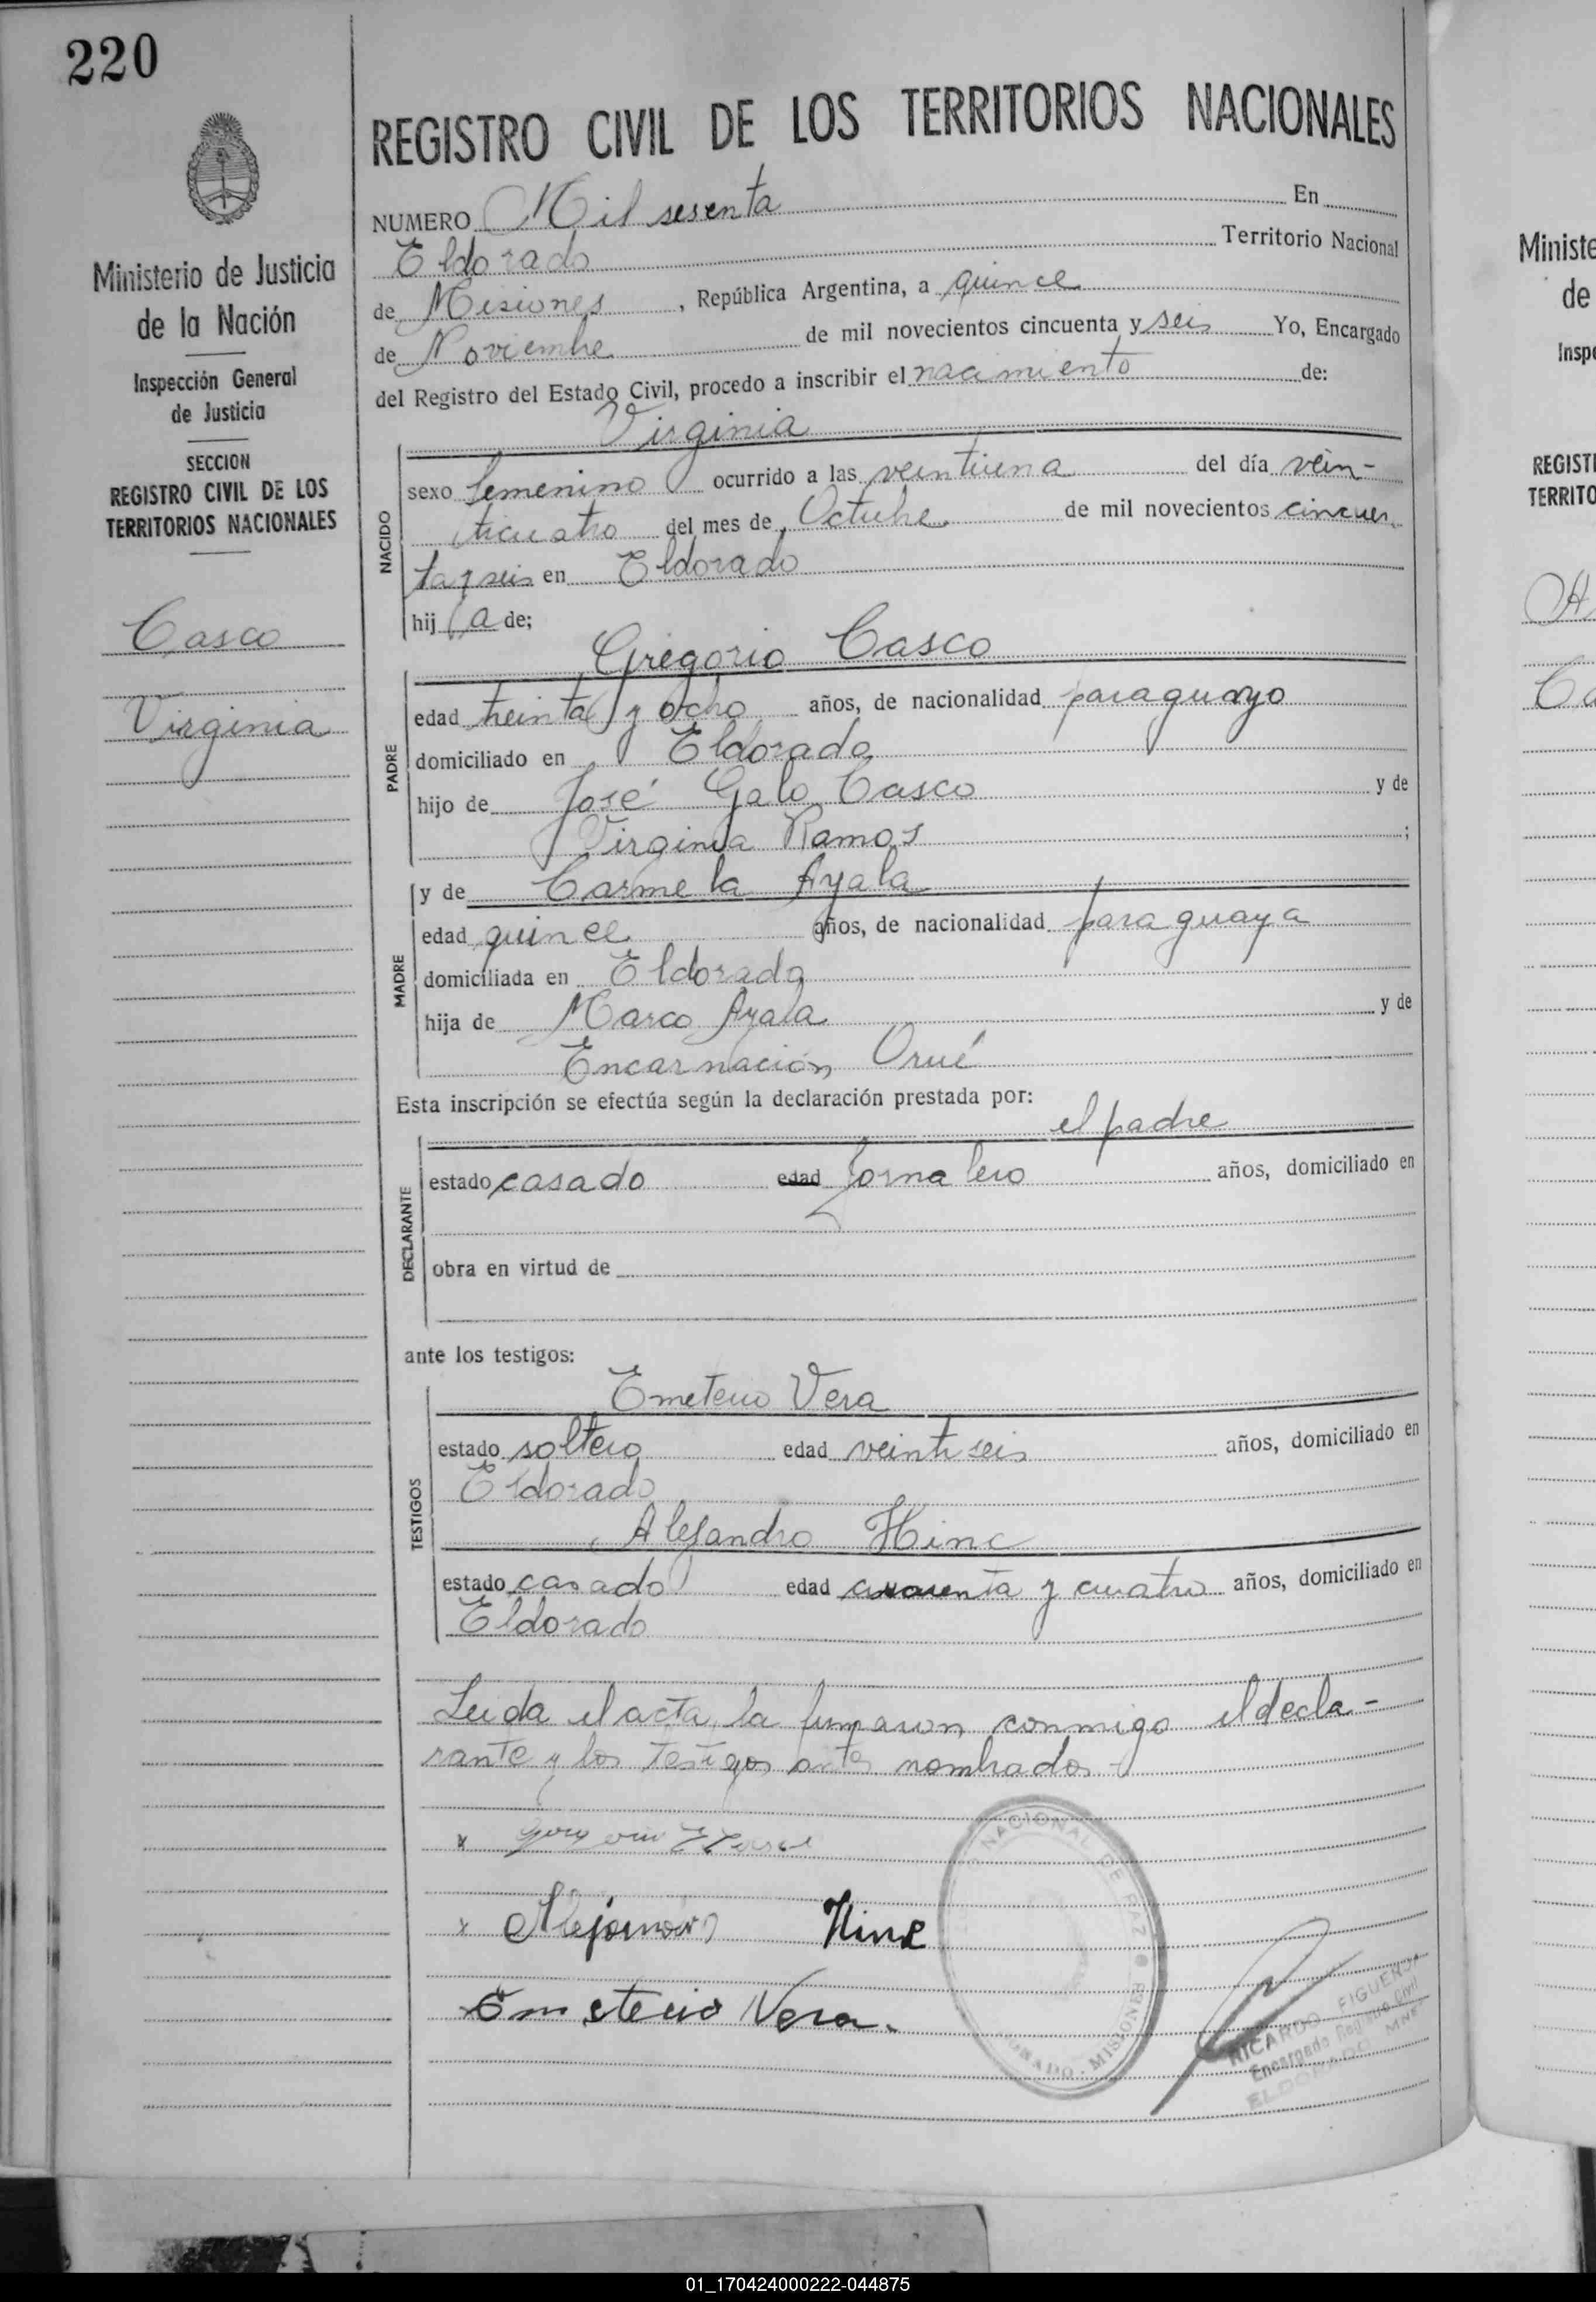 220
Ministerio de Justicia
de la Nación
Inspección General
de Justicia
SECCION
REGISTRO CIVIL DE LOS
TERRITORIOS NACIONALES
Casco
Virginia
REGISTRO CIVIL DE LOS TERRITORIOS NACIONALES
NUMERO Mil sesenta En
Eldorado Territorio Nacional
de Misiones, República Argentina, a quince
de Noviembre de mil novecientos cincuenta y seis Yo, Encargado
del Registro del Estado Civil, procedo a inscribir el nacimiento de:
Virginia
NACIDO
sexo femenino ocurrido a las veintiuna del día vein-
ticuatro del mes de Octubre de mil novecientos cincuen
ta y seis en Eldorado
hij a de;
Gregorio Casco
PADRE
edad treinta y ocho años, de nacionalidad paraguayo
domiciliado en Eldorado
hijo de José Galo Casco y de
Virginia Ramos ;
y de Carmela Ayala
MADRE
edad quince años, de nacionalidad paraguaya
domiciliada en Eldorado
hija de Marco Ayala y de
Encarnación Orué
Esta inscripción se efectúa según la declaración prestada por:
el padre
DECLARANTE
estado casado edad Jornalero años, domiciliado en
obra en virtud de
ante los testigos:
Emeterio Vera
TESTIGOS
estado soltero edad veintiseis años, domiciliado en
Eldorado
Alejandro Hinc
estado casado edad cuarenta y cuatro años, domiciliado en
Eldorado
Leida el acta, la firmaron conmigo el decla-
rante y los testigos antes nombrados-
x
x Alejandro Hinc
Emeterio Vera.
NACIONAL DE PAZ
ELDORADO - MISIONES
RICARDO FIGUEROA
Encargado Registro Civil
ELDORADO MNES
Ministe
de
Inspe
REGISTI
TERRITO
A
Ca
01_170424000222-044875